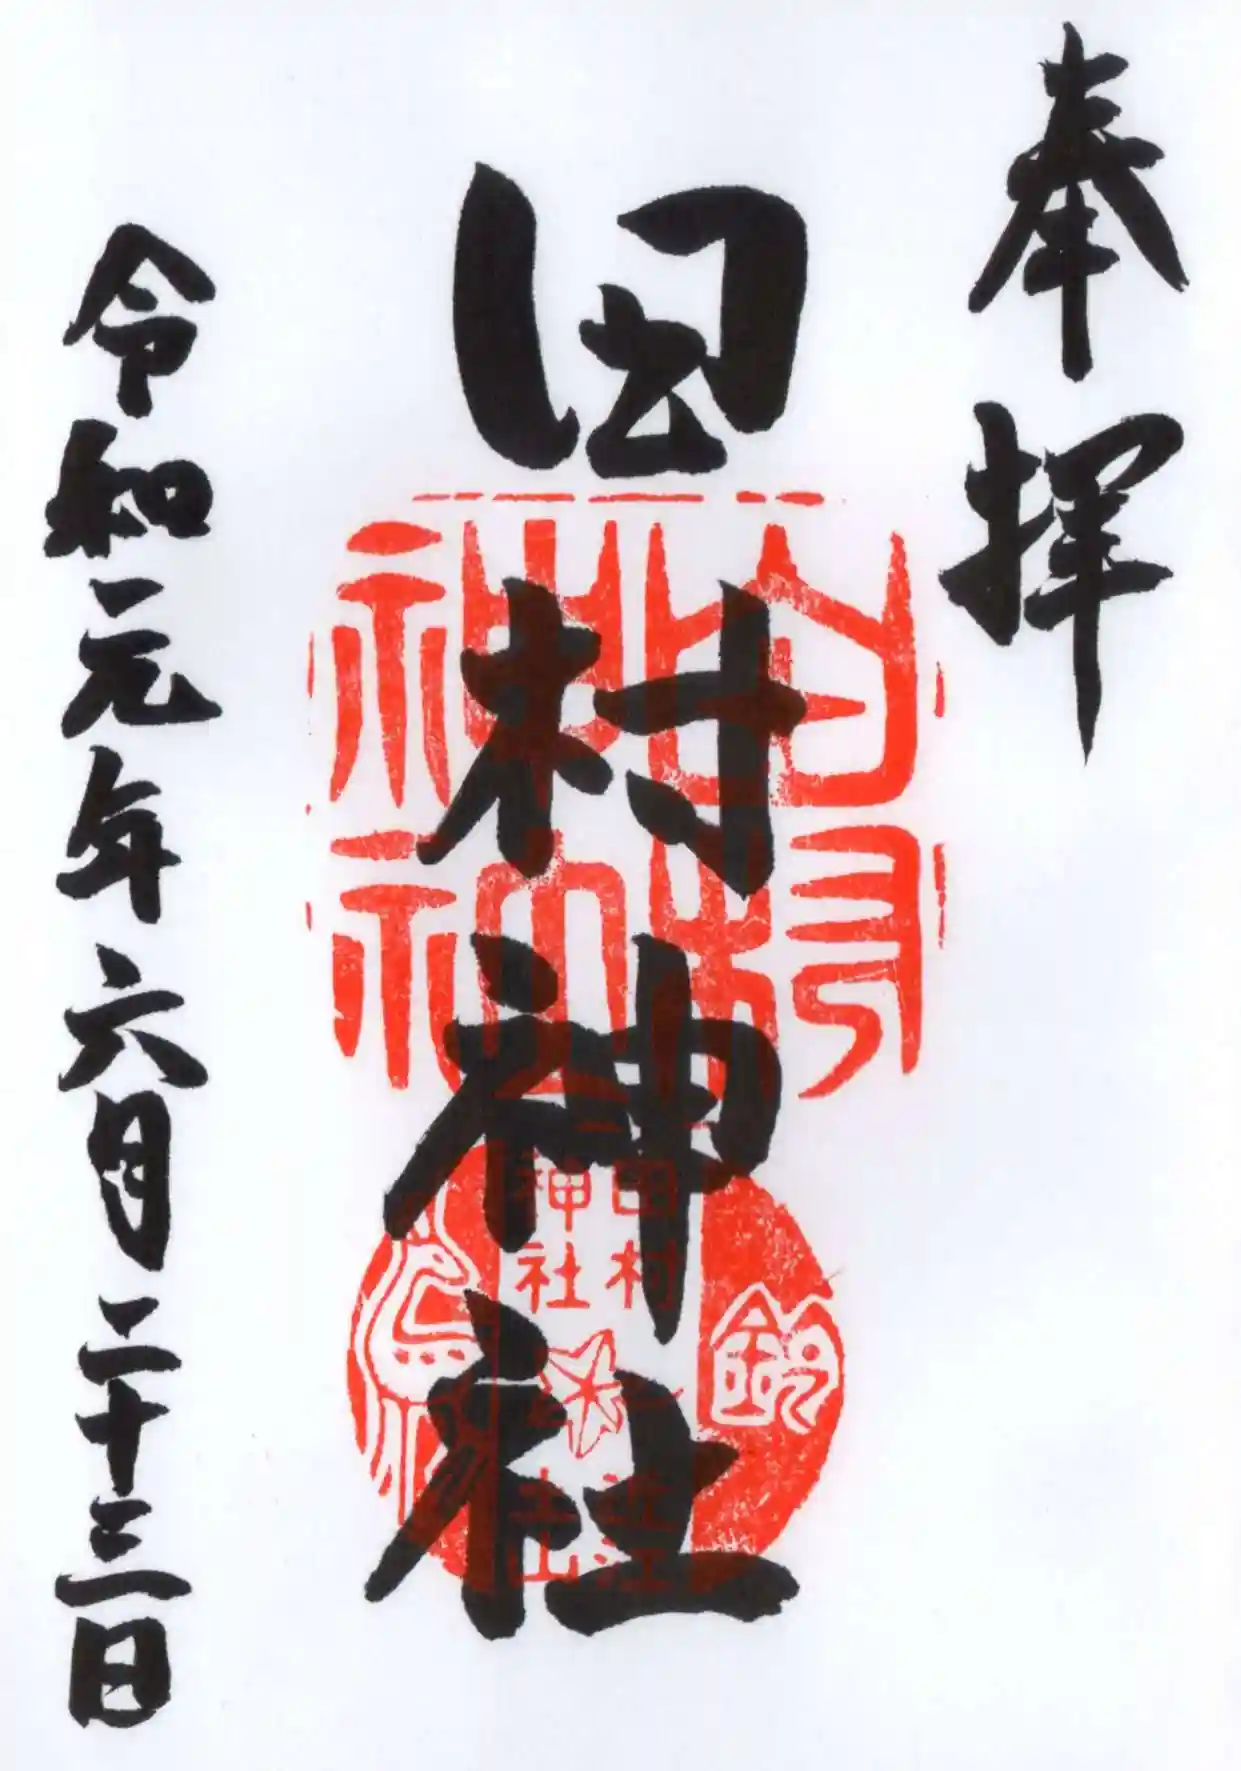 奉拝
田村神社
令和元年六月二十三日
田村
神社
土山
鈴